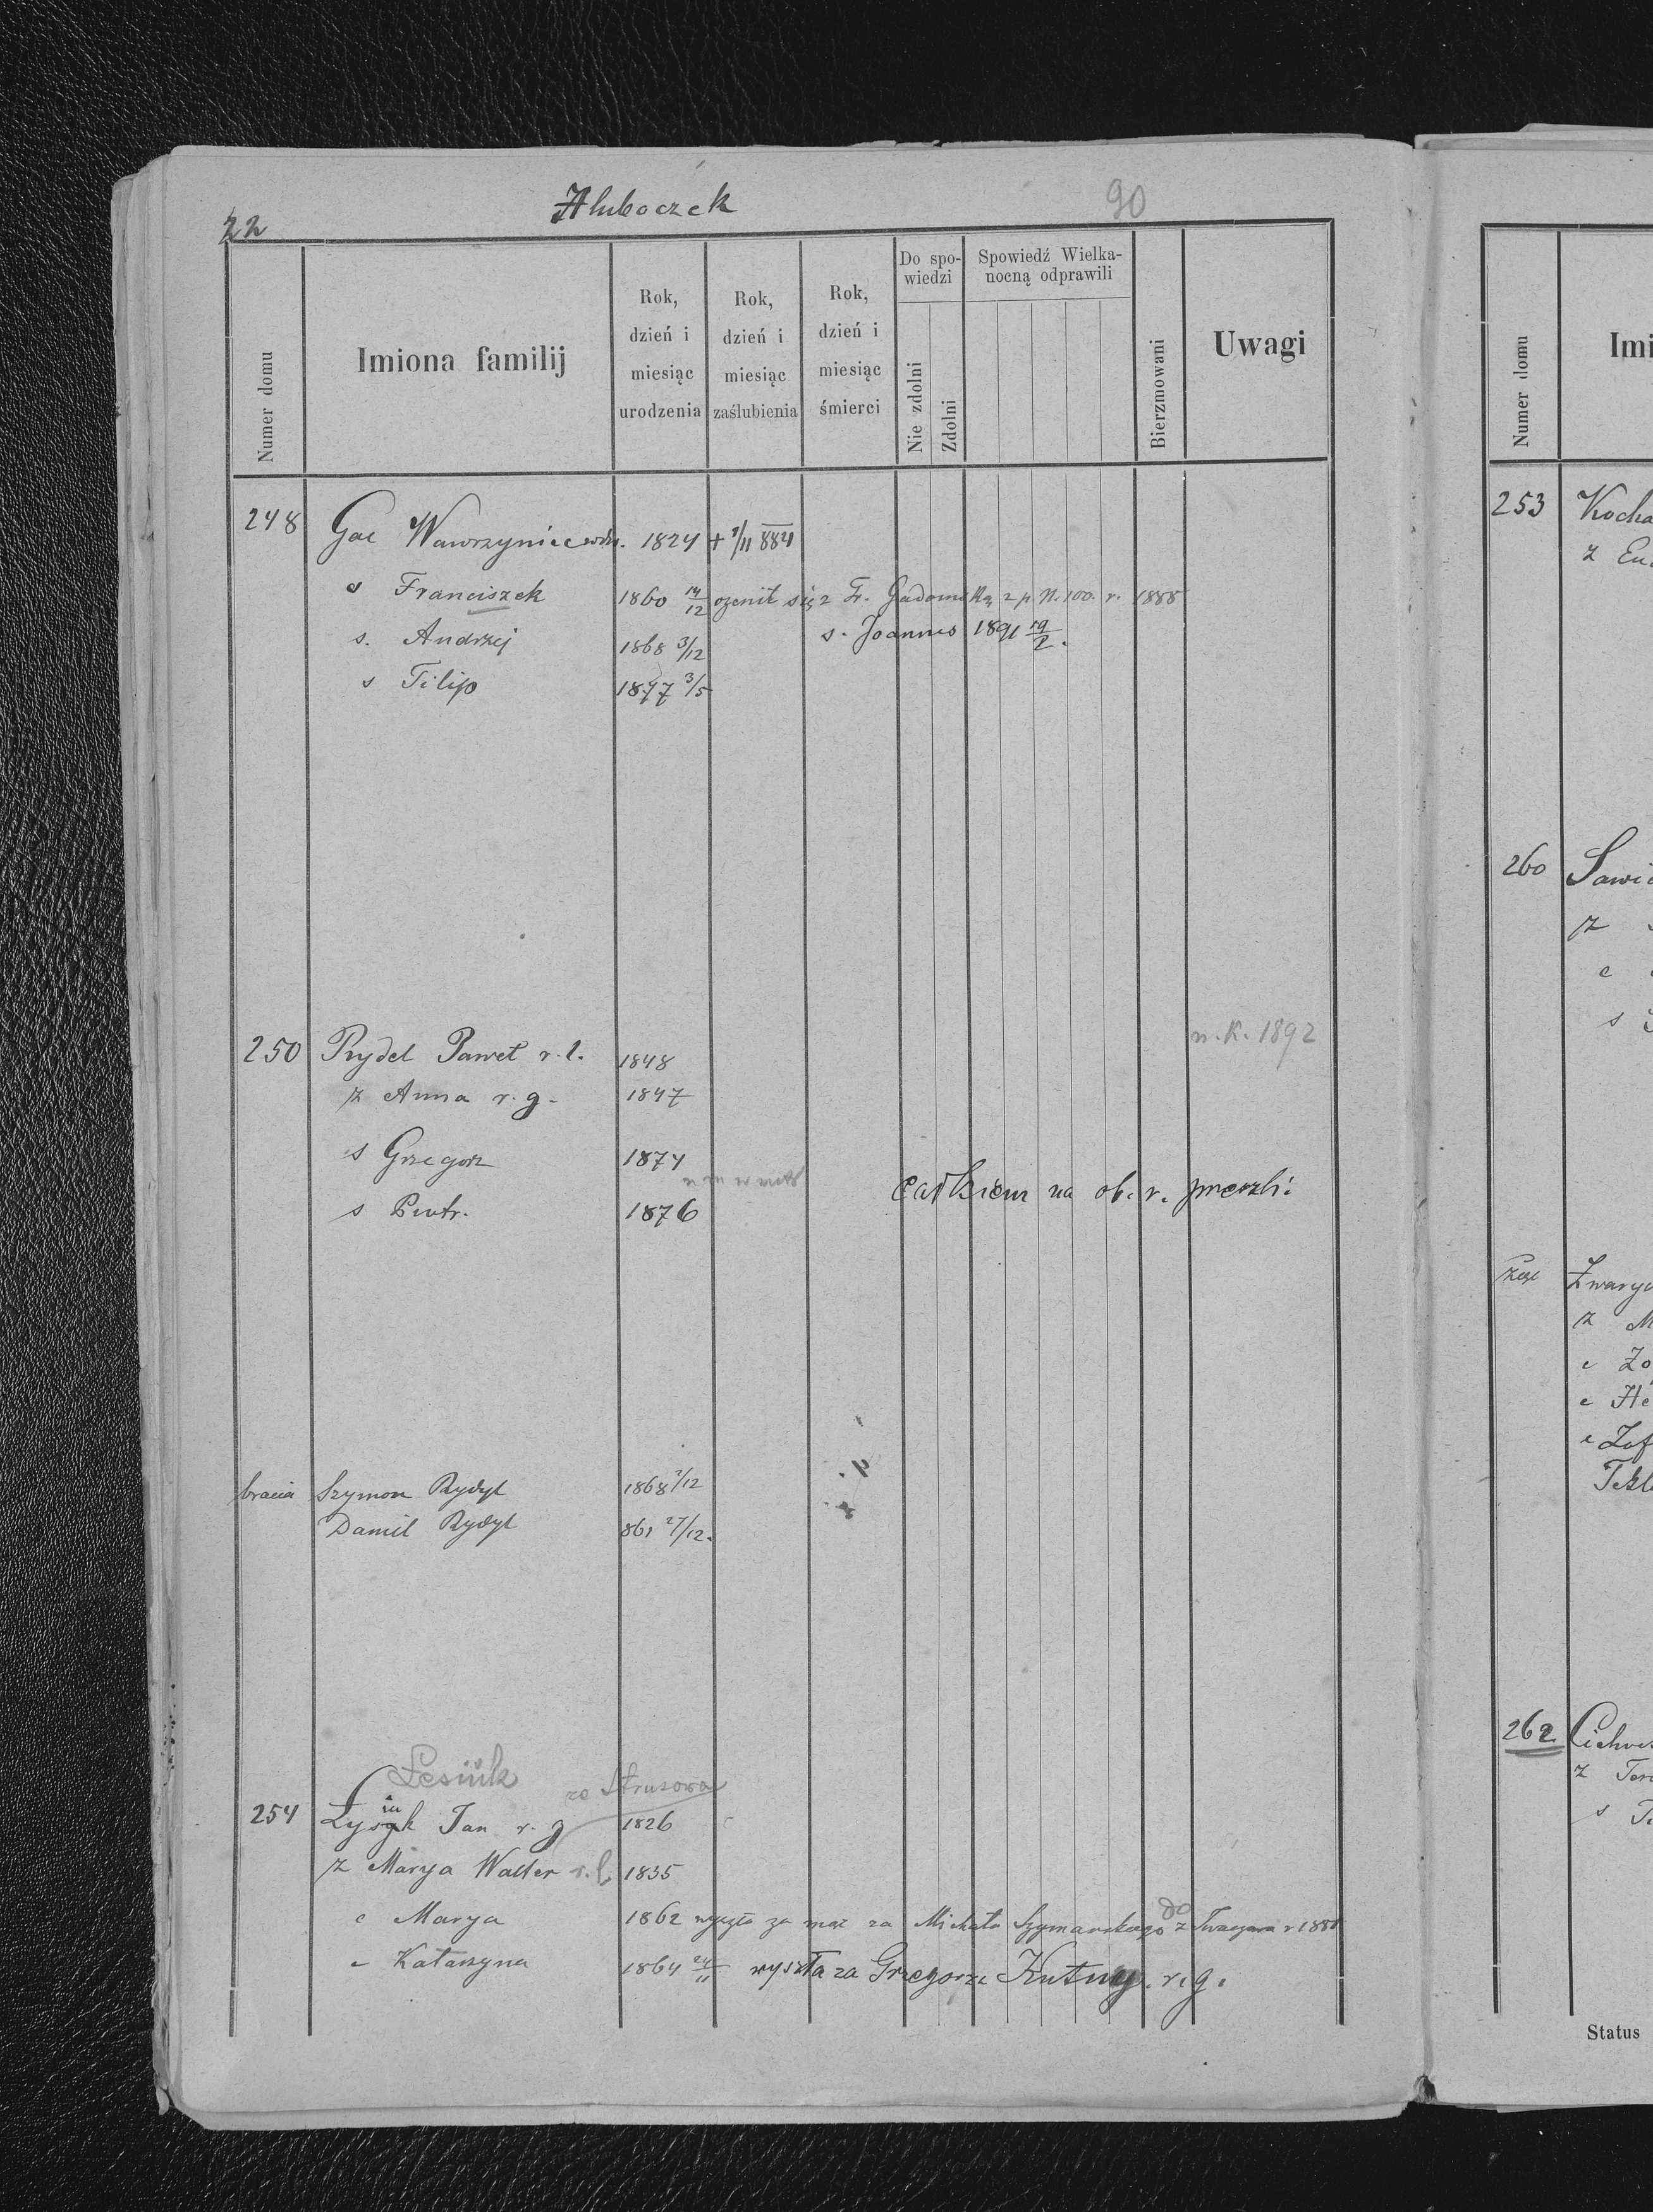 Hluboczek
90
22
Numer domu
Imiona familij
Rok, dzień i miesiąc urodzenia
Rok, dzień i miesiąc zaślubienia
Rok, dzień i miesiąc śmierci
Do spo-
wiedzi
Nie zdolni
Zdolni
Spowiedź Wielka-
nocną odprawili
Bierzmowani
Uwagi
248 Gac Wawrzyniec wdw. 1824 + 1/11 884
s Franciszek 1860 14/12 ożenił się z Fr. Gadomską z p N. 100. r. 1888
s. Andrzej 1868 3/12 s. Joannes 1891 29/
s Filip 1877 3/5
n. K. 1892
250 Rydel Paweł r. l. 1848
ż Anna r. g. 1847
s Grzegorz 1874
całkiem na ob. r. przeszli.
s Piotr. 1876
bracia Szymon Rydyl 1868 /12
Danił Rydyl 861 27/12.
Łesiuk ze Strusowa
254 Łysyk Jan r. g 1826
ż Marya Walter r. l. 1835
c Marya 1862 wyszła za mąż za Michała Szymańskiego do z r 188
c Katarzyna 1864 24/11 wyszła za Grzegorza Kutny. r. g.
Numer domu
Imi
253 Kocha
ż Eu
260 Sawi
ż
c
s
Zwary
ż M
c Zo
c He
c Zof
Tekl
262 Cichoc
ż Ter
s
Status